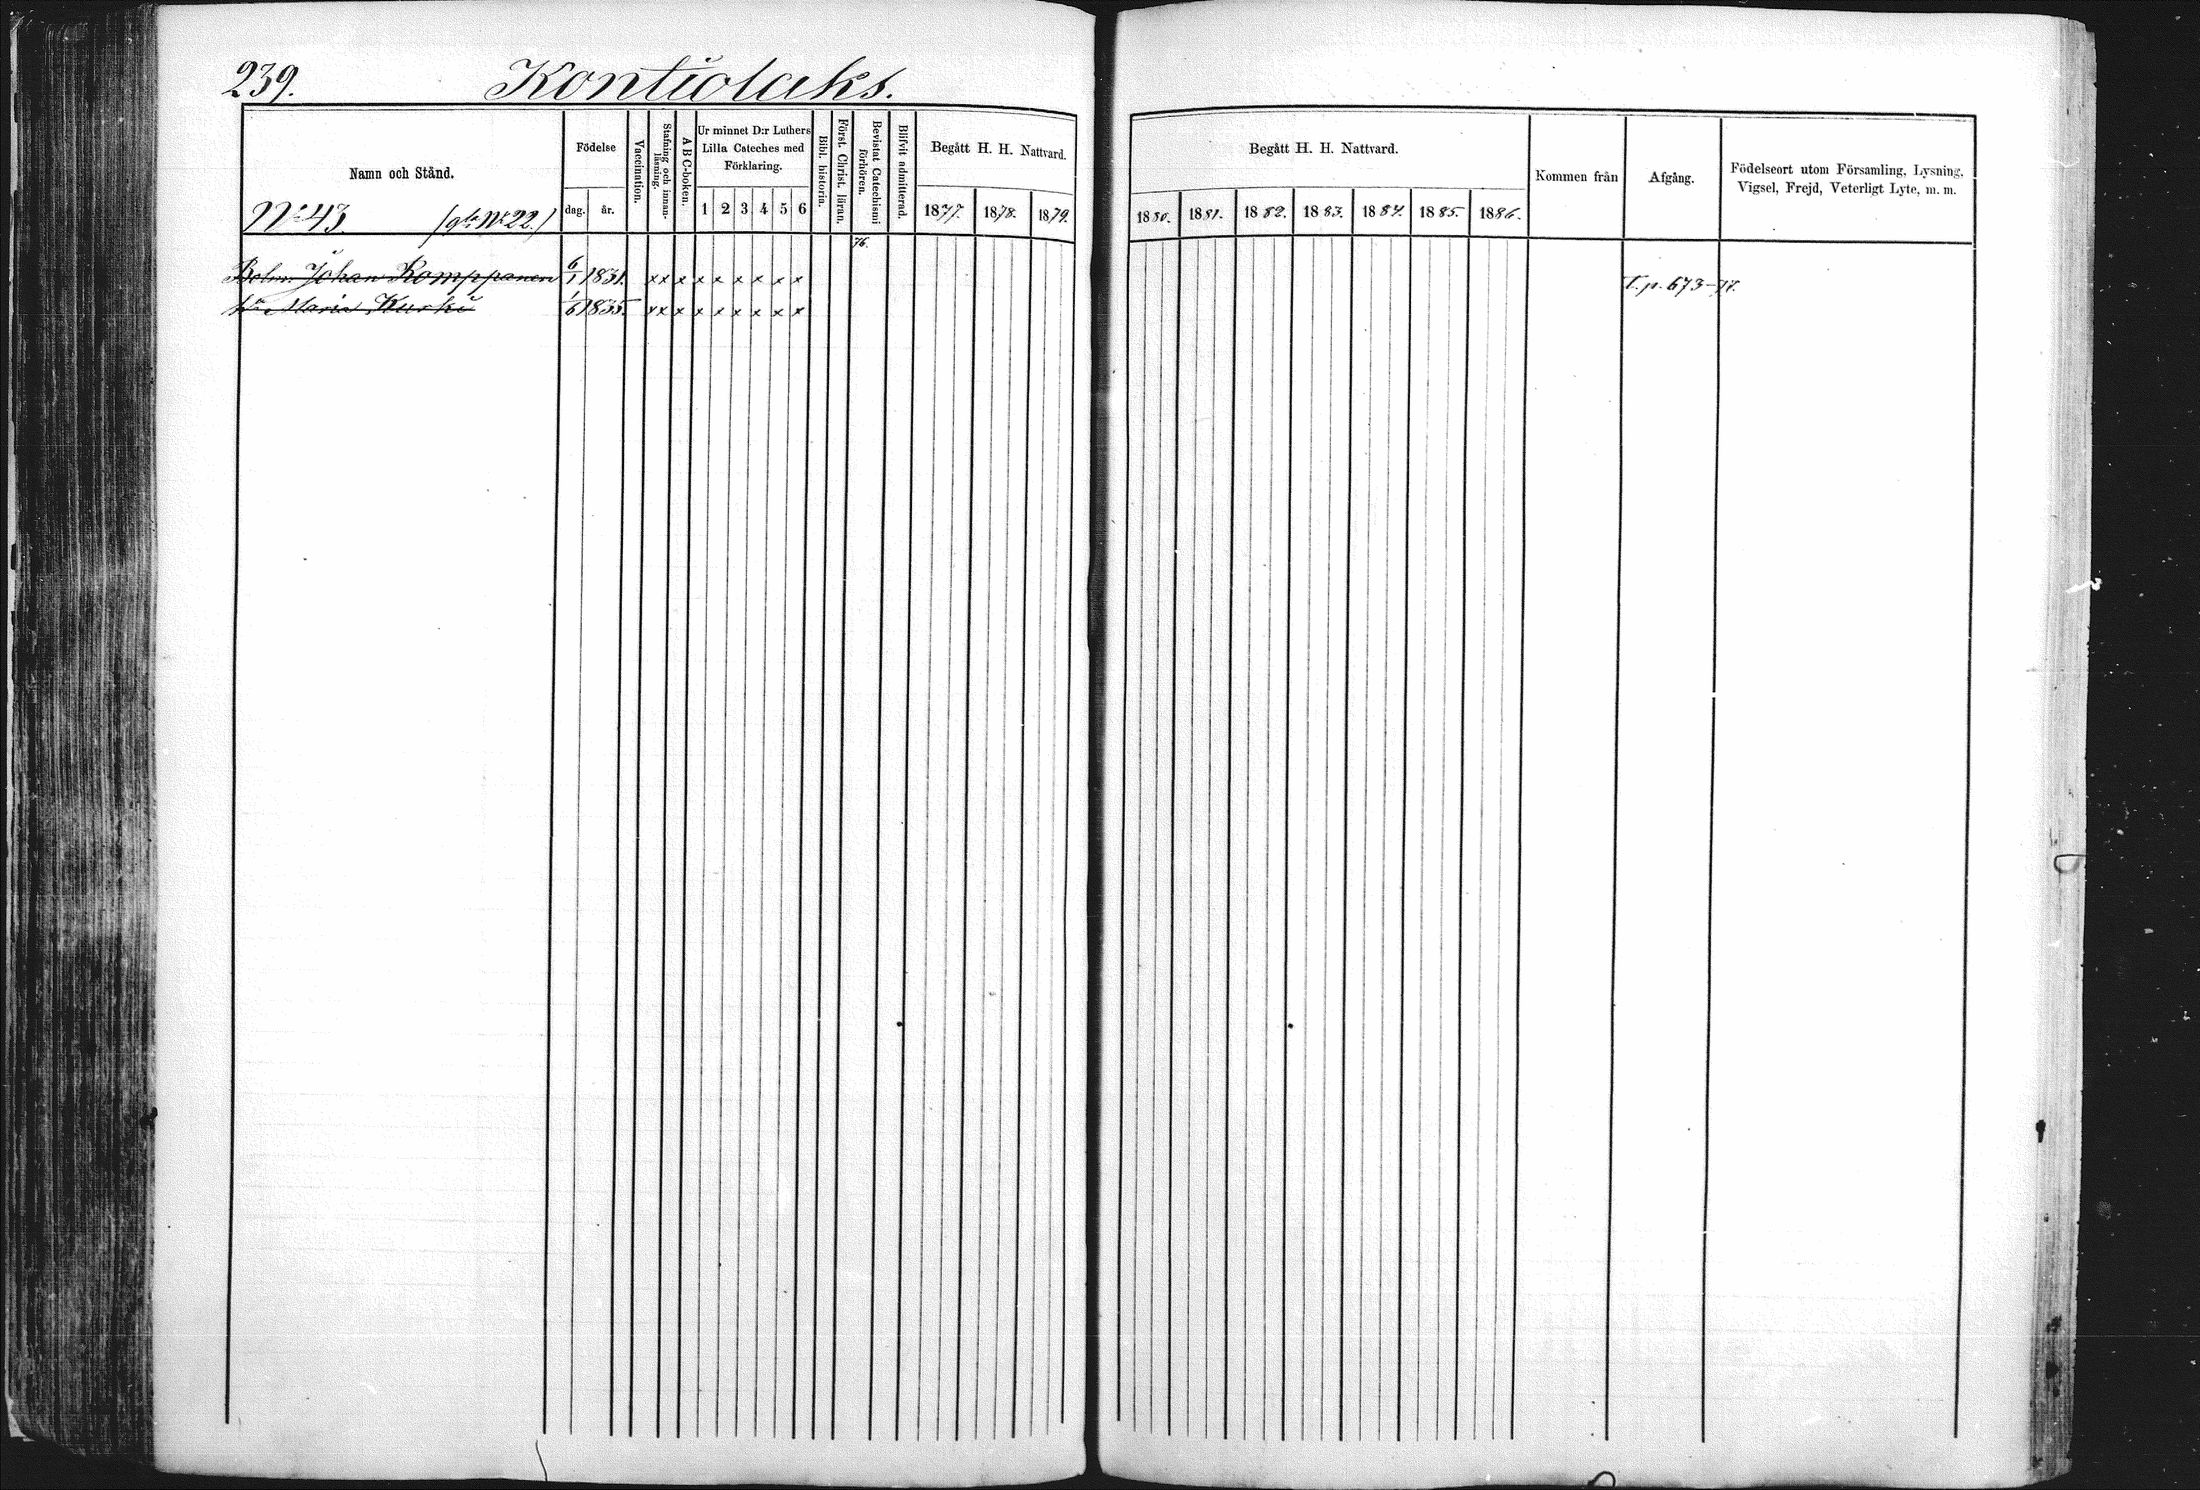 239. Kontiolaks.
Namn och Stånd.
Födelse
dag. år.
Vaccination.
Stafning och innanläsning.
A B C-boken.
Ur minnet D:r Luthers
Lilla Cateches med
Förklaring.
1 2 3 4 5 6
Bibl. historia.
Först. Christ. läran.
Bevistat Catechismi förhören.
Blifvit admitterad.
Begått H. H. Nattvard.
1877. 1878. 1879.
Begått H. H. Nattvard.
1880. 1881. 1882. 1883. 1884. 1885. 1886.
Kommen från
Afgång.
Födelseort utom Församling, Lysning,
Vigsel, Frejd, Veterligt Lyte, m. m.
No 43 (gla No 22.)
76.
Bolm. Johan Komppanen 6/1 1831. x x x x x x x x x T. p. 673-77.
h:u Maria Kurki 1/6 1835. x x x x x x x x x